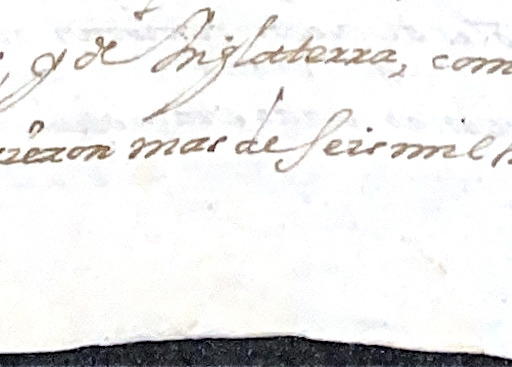 y de Inglaterra, com
rieron mas de seis mil h